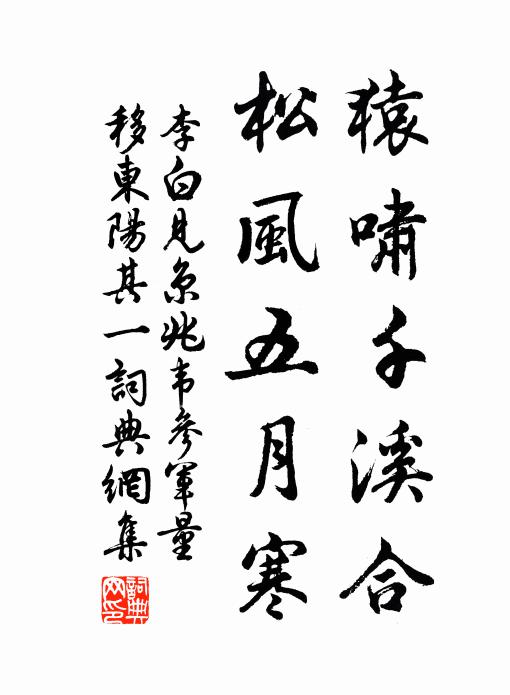 猿嘯千溪合
松風五月寒
李白見京兆韦參軍量
移東陽其一詞典網集
詞典